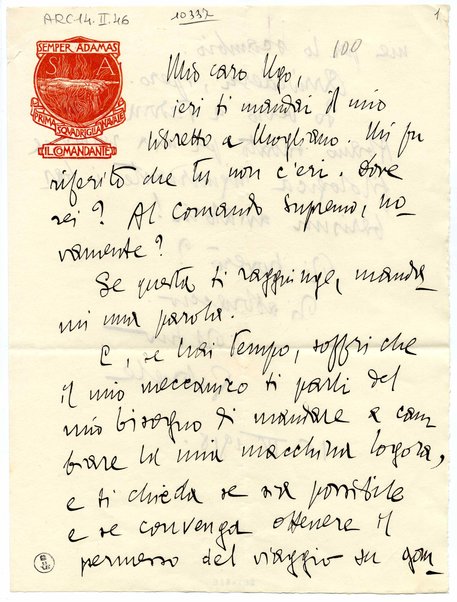 ARC14.II.46
10337
1
100
SEMPER ADAMAS
S A
PRIMA SQUADRIGLIA NAVALE
IL COMANDANTE
Mio caro Ugo,
ieri ti mandai il mio
libretto a Mogliano. Mi fu
riferito che tu non c'eri. Dove
sei? Al Comando Supremo, no-
vamente?
Se questa ti raggiunge, manda-
mi una parola.
E, se hai tempo, soffri che
il mio meccanico ti parli del
mio bisogno di mandare a cam-
biare la mia macchina logora,
e ti chieda se sia possibile
e se convenga ottenere il
permesso del viaggio su gom-